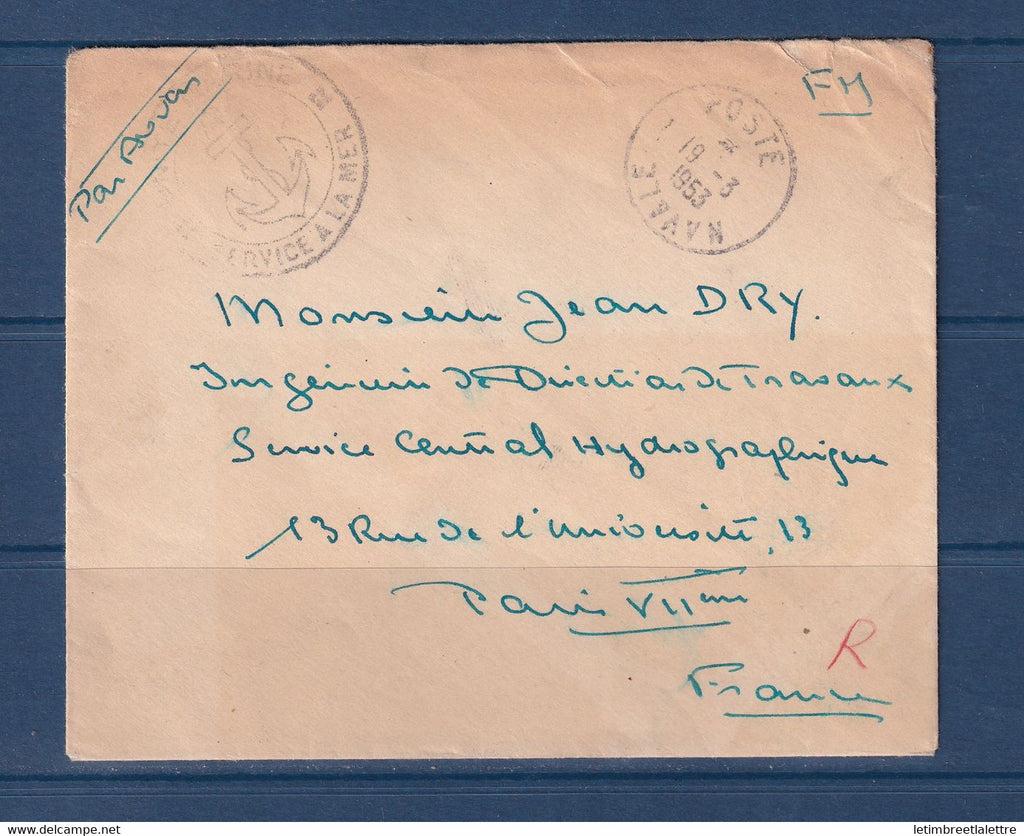 Par Avion
SERVICE À LA MER
POSTE
19 - 3
1953
NAVALE
FM
Monsieur Jean DRY.
Ingénieur de Direction de Travaux
Service Central Hydrographique
13 Rue de l'Université, 13
Paris VIIème
R
France
letimbreetlalettre